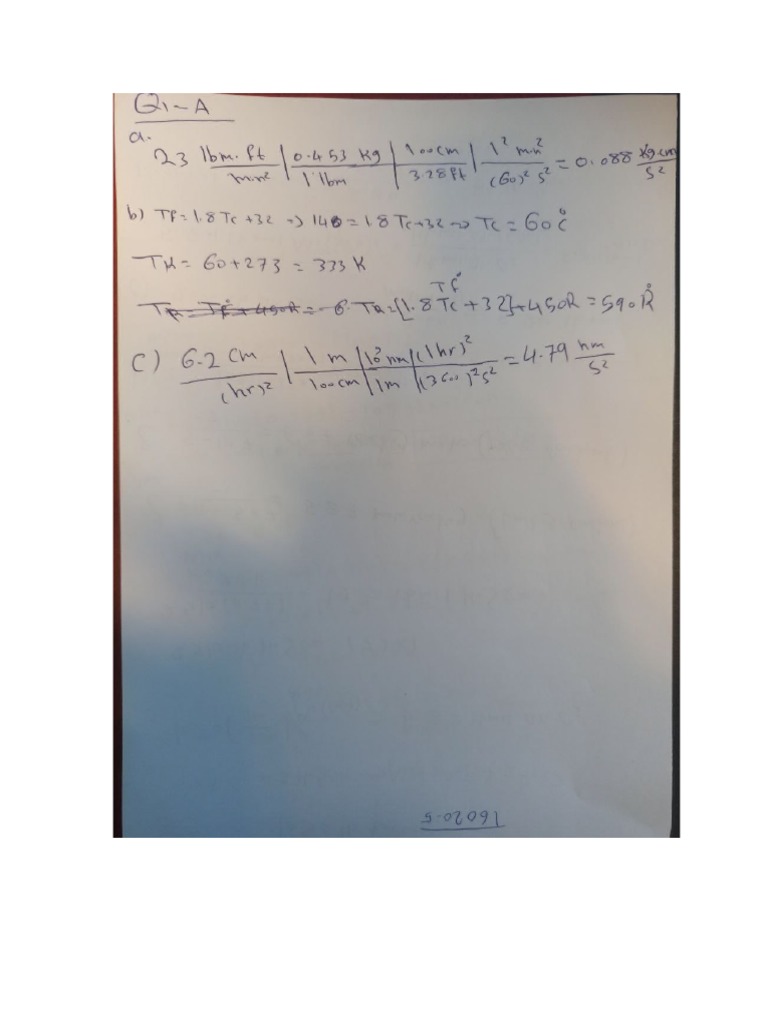 Q1-A
a.
23 lbm.ft/min² | 0.453 Kg/1 lbm | 100cm/3.28ft | 1² min²/(60)² s² = 0.088 Kg cm/s²
b) Tf = 1.8 Tc +32 => 140 = 1.8 Tc+32 => Tc = 60 °C
TK = 60+273 = 333 K
TR = [1.8 Tc + 32]+450R = 590 °R
Tf°
c) 6.2 cm/(hr)² | 1 m/100cm | 10⁹ nm/1m | (1hr)²/(3600)² s² = 4.79 nm/s²
16020.5